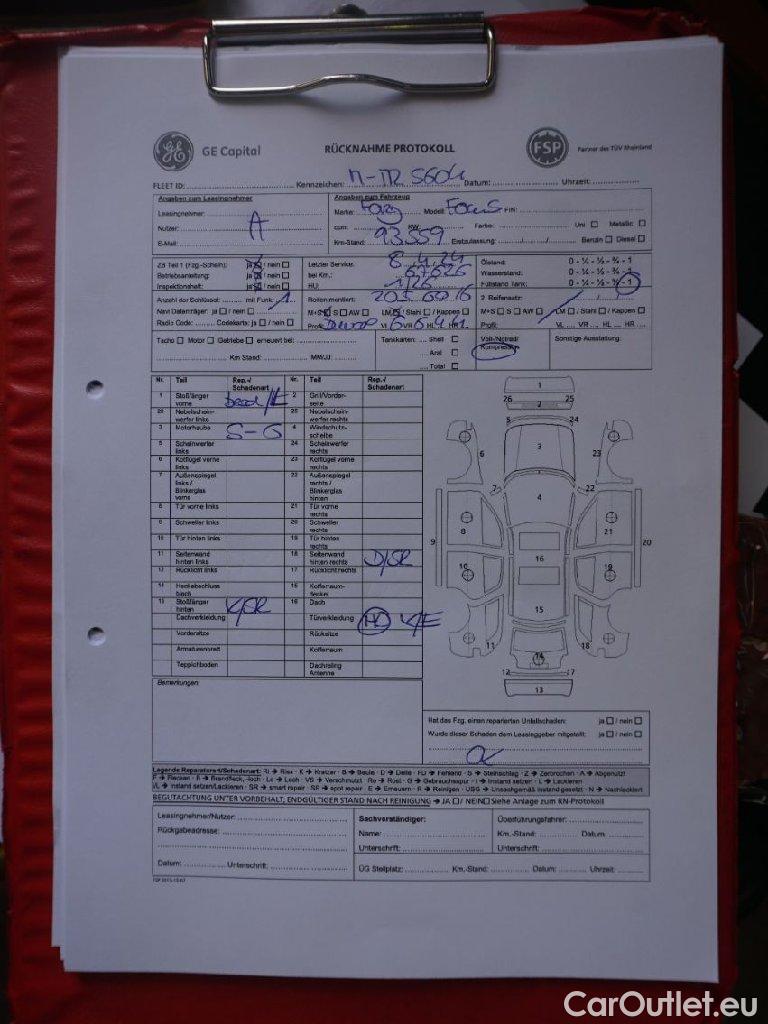 GE Capital
RÜCKNAHME PROTOKOLL
FSP
Partner des TÜV Rheinland
FLEET ID: Kennzeichen: M-TR 5604 Datum: Uhrzeit:
Angaben zum Leasingnehmer
Angaben zum Fahrzeug
Leasingnehmer:
Marke: Ford Modell: Focus FIN:
Nutzer: A
ccm: KW: Farbe: Uni Metallic
E-Mail:
Km-Stand: 93.559 Erstzulassung: Benzin Diesel
ZB Teil 1 (Fzg.-Schein): ja / nein
Letzter Service: 8.4.24
Ölstand: 0 - ¼ - ½ - ¾ - 1
Betriebsanleitung: ja / nein
bei Km.: 67626
Wasserstand: 0 - ¼ - ½ - ¾ - 1
Inspektionsheft: ja / nein
HU: 1/26
Füllstand Tank: 0 - ¼ - ½ - ¾ - 1
Anzahl der Schlüssel: mit Funk: 1
Reifen montiert: 205 60 16
2 Reifensatz:
Navi Datenträger: ja / nein
M+S S AW LM / Stahl / Kappen
M+S S AW LM / Stahl / Kappen
Radio Code: Codekarte: ja / nein
Profil: VL 6 VR 6 HL 4 HR
Profil: VL VR HL HR
Tacho Motor Getriebe erneuert bei:
Tankkarten: Shell
Voll-/Notrad/
Sonstige Ausstattung:
Aral
Kompressor
Km Stand: MM/JJ:
Total
Nr. Teil Rep.-/ Schadenart Nr. Teil Rep.-/ Schadenart
1 Stoßfänger vorne
2 Grill/Vorderseite
26 Nebelscheinwerfer links
25 Nebelscheinwerfer rechts
3 Motorhaube S-G
4 Windschutzscheibe
5 Scheinwerfer links
24 Scheinwerfer rechts
6 Kotflügel vorne links
23 Kotflügel vorne rechts
7 Außenspiegel links / Blinkerglas vorne
22 Außenspiegel rechts / Blinkerglas hinten
8 Tür vorne links
21 Tür vorne rechts
9 Schweller links
20 Schweller rechts
10 Tür hinten links
19 Tür hinten rechts
11 Seitenwand hinten links
18 Seitenwand hinten rechts D/SR
12 Rücklicht links
17 Rücklicht rechts
14 Heckabschluss blech
15 Kofferraumdeckel
13 Stoßfänger hinten K/SR
16 Dach
Dachverkleidung
Türverkleidung K/E
Vordersitze
Rücksitze
Armaturenbrett
Kofferraum
Teppichboden
Dachreling Antenne
1
26 25
2
24
3
6
23
7 22
4
8 21
9 20
16
10 19
15
11 18
14
12 17
13
Bemerkungen:
Hat das Fzg. einen reparierten Unfallschaden: ja / nein
Wurde dieser Schaden dem Leasinggeber mitgeteilt: ja / nein
Legende Reparaturart/Schadenart: Ri → Riss · K → Kratzer · B → Beule · D → Delle · FU → Fehlend · S → Steinschlag · Z → Zerbrochen · A → Abgenutzt
F → Flecken · B → Brandfleck, -loch · Lo → Loch · VS → Verschmutzt · Ro → Rost · G → Gebrauchsspur · I → Instand setzen · L → Lackieren
I/L → Instand setzen/Lackieren · SR → smart repair · SR → spot repair · E → Erneuern · R → Reinigen · USG → Unsachgemäß instand gesetzt · N → Nachlackiert
BEGUTACHTUNG UNTER VORBEHALT, ENDGÜLTIGER STAND NACH REINIGUNG → JA / NEIN Siehe Anlage zum KN-Protokoll
Leasingnehmer/Nutzer:
Sachverständiger:
Überführungsfahrer:
Rückgabeadresse:
Name:
Km.-Stand: Datum
Unterschrift:
Unterschrift:
Datum: Unterschrift:
ÜG Stellplatz: Km.-Stand: Datum: Uhrzeit:
CarOutlet.eu